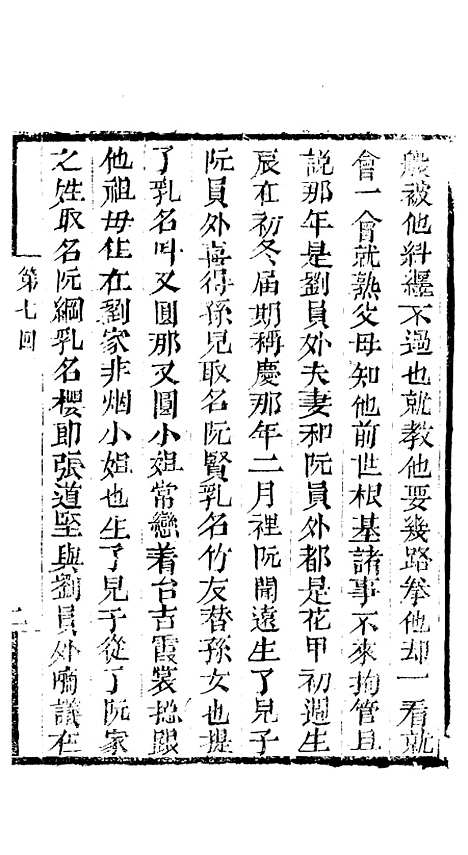 般被他糾纏不過也就教他耍幾路拳他却一看就
會一會就熟父母知他前世根基諸事不來拘管且
說那年是劉員外夫妻和阮員外都是花甲初週生
辰在初冬屆期稱慶那年二月裡阮開遠生了兒子
阮員外喜得孫兒取名阮賢乳名竹友替孫女也提
了乳名叫又圓那又圓小姐常戀着台古霞裳搃跟
他祖母住在劉家非烟小姐也生了兒子從了阮家
之姓取名阮綱乳名櫻即張道坚與劉員外商議在
第七回
二